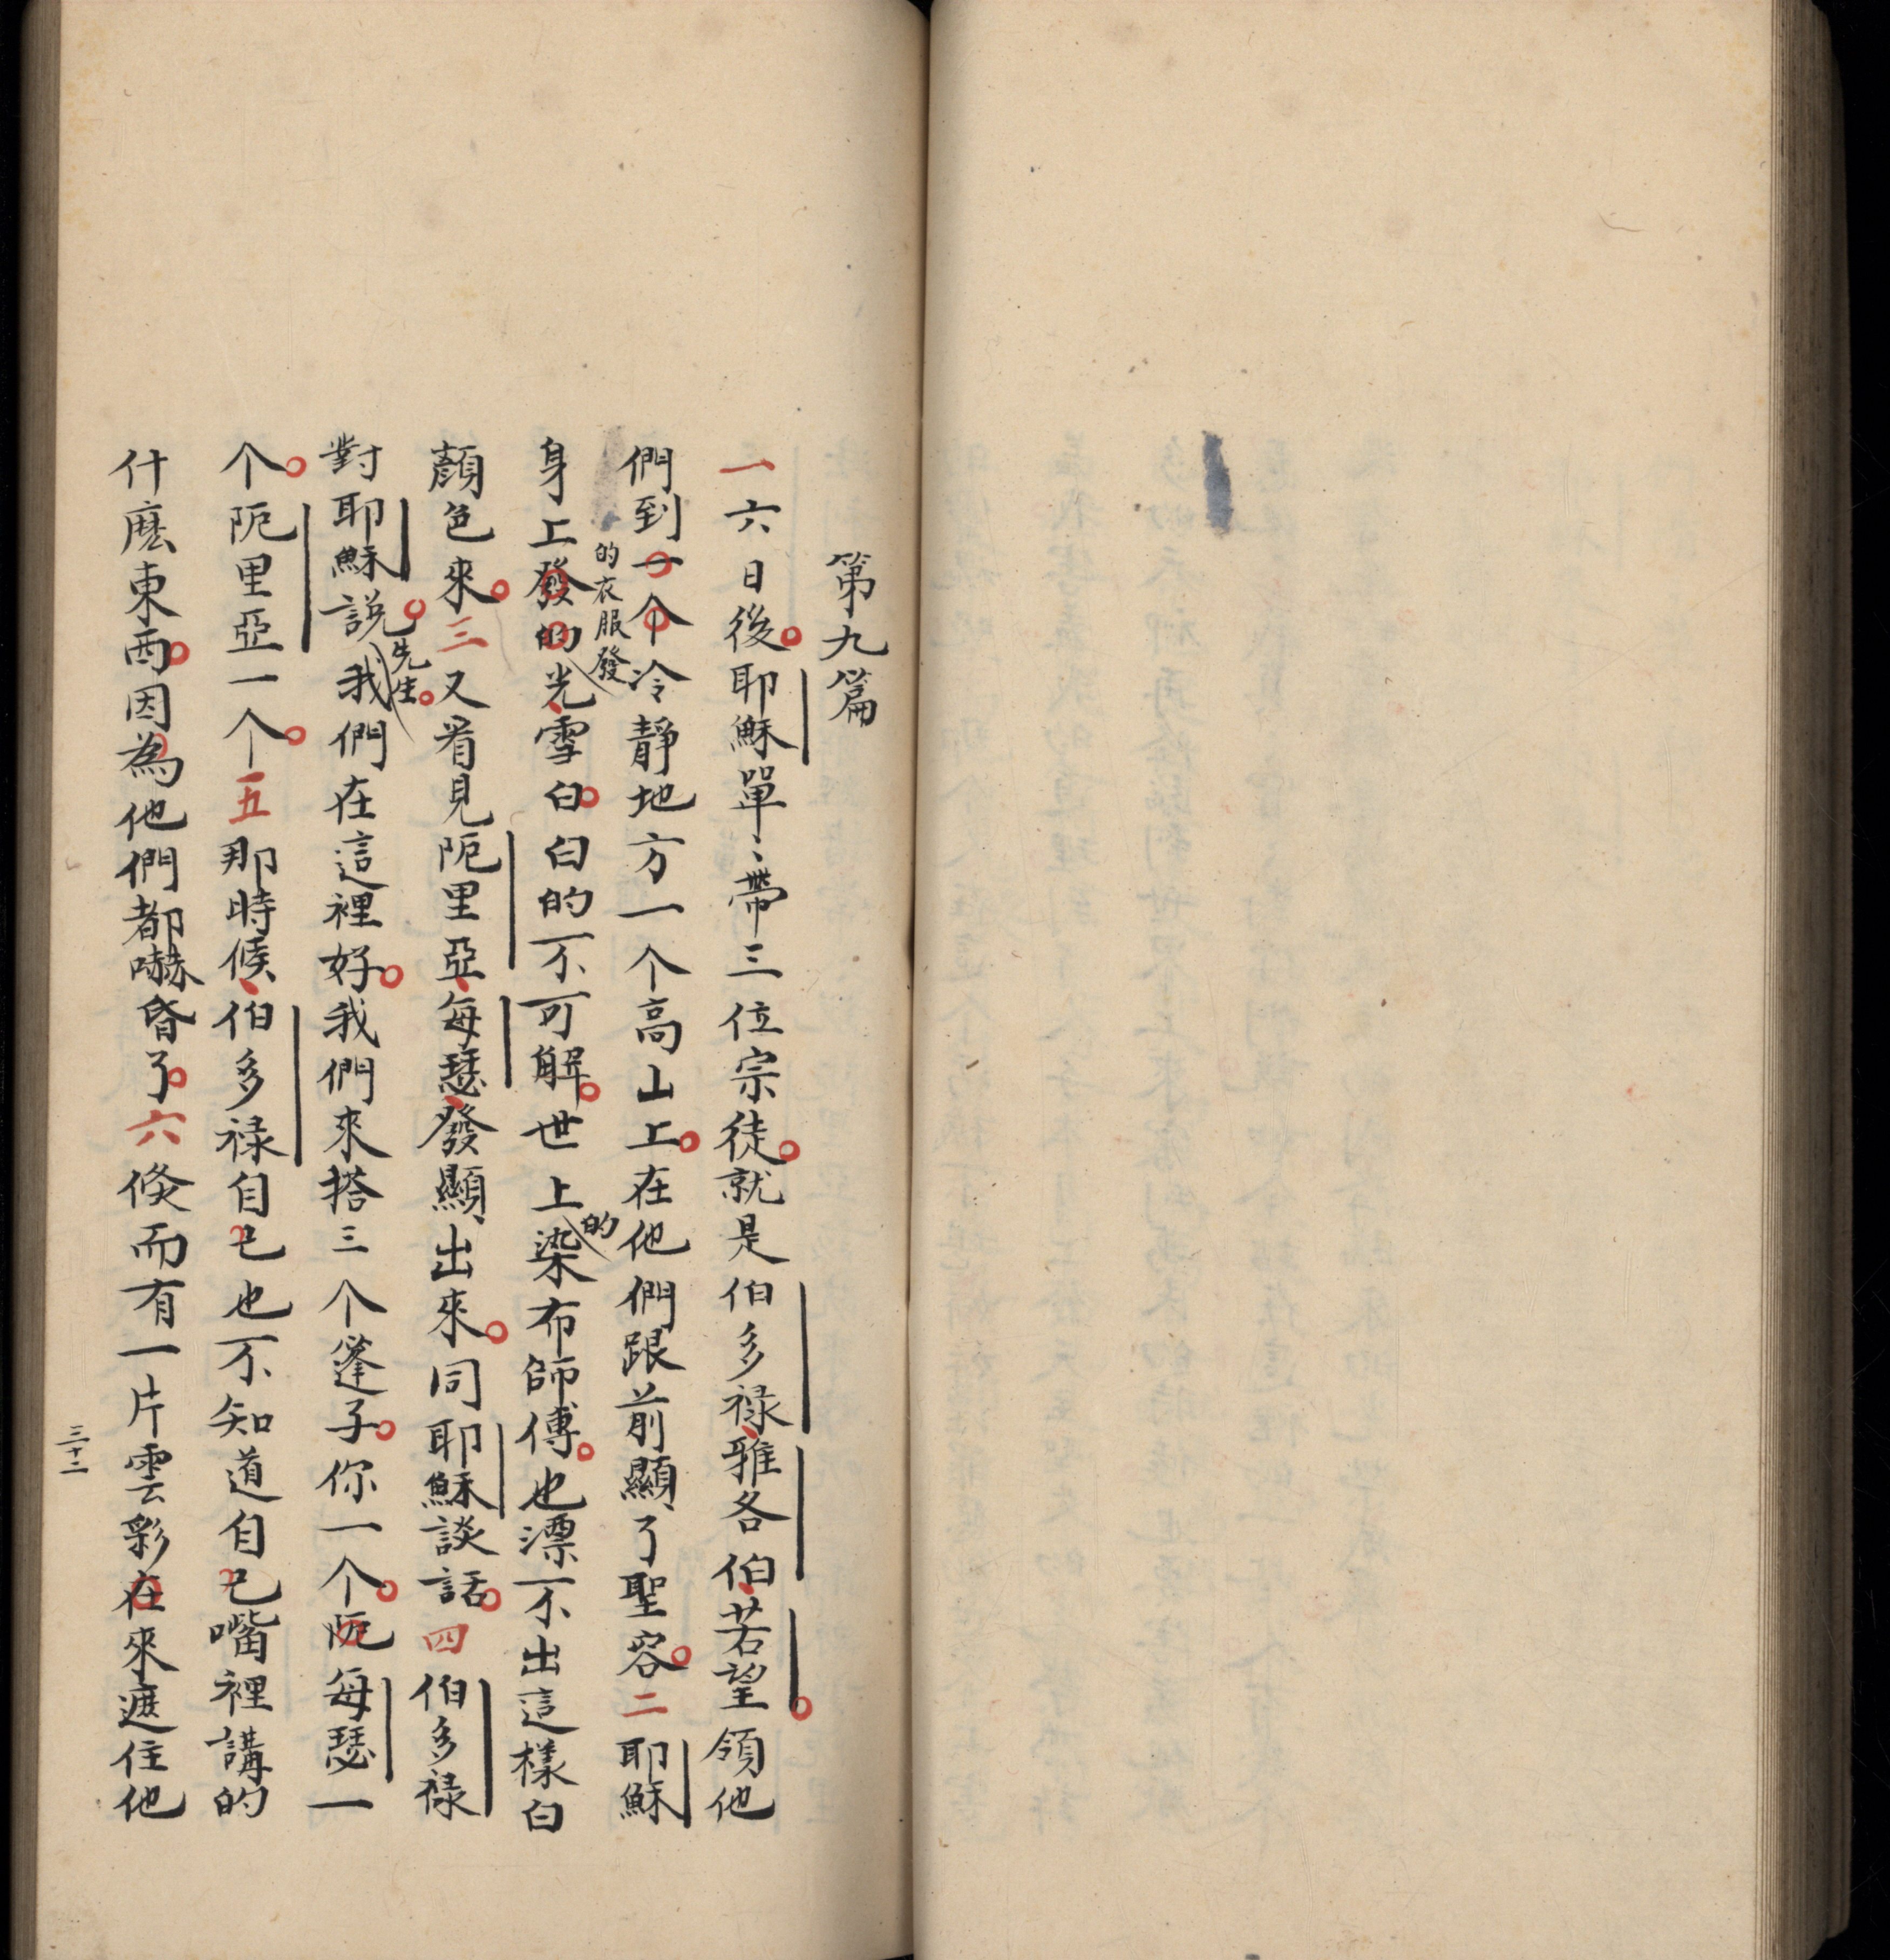 第九篇
一六日後。耶穌單〻帶三位宗徒。就是伯多禄、雅各伯、若望。領他
們到一个冷靜地方一个高山上。在他們跟前顯了聖容。二耶穌
身上發的光、雪白。白的不可解。世上染布師傅。也漂不出這樣白
的衣服發
的
顏色來。三又看見阨里亞、每瑟、發顯出來。同耶穌談話。四伯多禄
對耶穌說。我們在這裡好。我們來搭三个篷子。你一个。阨每瑟一
先生。
个。阨里亞一个。五那時候、伯多禄自己也不知道自己嘴裡講的
什麽東西。因為他們都嚇昏了。六倐而有一片雲彩在來遮住他
三十二